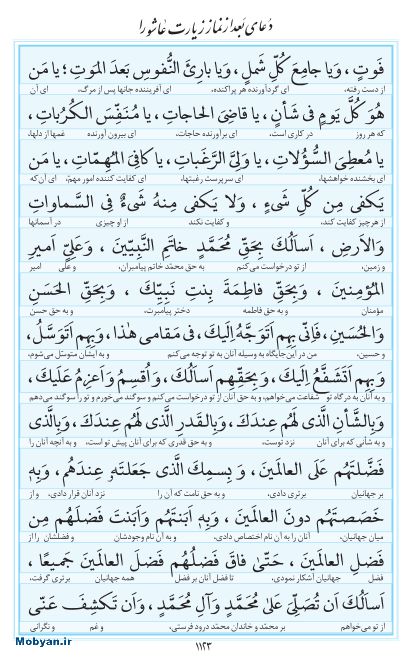 دعای بعد از نماز زیارت عاشورا
فَوتٍ ، وَیا جامِعَ کُلِّ شَملٍ ، وَیا بارِئَ النُّفوسِ بَعدَ المَوتِ ؛ یا مَن
از دست رفته، ای گردآورنده هر پراکنده، ای آفریننده جانها پس از مرگ، ای آن
هُوَ کُلَّ یَومٍ فی شَأنٍ ، یا قاضِیَ الحاجاتِ ، یا مُنَفِّسَ الکُرُباتِ ،
که هر روز در کاری است، ای برآورنده حاجات، ای بیرون آورنده غمها از دلها،
یا مُعطِیَ السُّؤُلاتِ ، یا وَلِیَّ الرَّغَباتِ ، یا کافِیَ المُهِمّاتِ ، یا مَن
ای بخشنده خواهشها، ای سرپرست رغبتها، ای کفایت کننده امور مهمّ، ای آن که
یَکفی مِن کُلِّ شَیءٍ ، وَلا یَکفی مِنهُ شَیءٌ فِی السَّماواتِ
از هر چیز کفایت کند، و کفایت نکند از او چیزی در آسمانها
وَالاَرضِ ، اَسأَلُکَ بِحَقِّ مُحَمَّدٍ خاتَمِ النَّبِیّینَ ، وَعَلِیٍّ اَمیرِ
و زمین، از تو درخواست می کنم به حق محمّد خاتم پیامبران، و علی امیر
المُؤمِنینَ ، وَبِحَقِّ فاطِمَةَ بِنتِ نَبِیِّکَ ، وَبِحَقِّ الحَسَنِ
مؤمنان و به حق فاطمه دختر پیامبرت، و به حق حسن
وَالحُسَینِ، فَاِنّی بِهِم اَتَوَجَّهُ اِلَیکَ ، فی مَقامی هٰذا ، وَبِهِم اَتَوَسَّلُ،
و حسین، من در این جایگاه به وسیله آنان به تو توجه می کنم و به ایشان متوسّل می‌شوم،
وَبِهِم اَتَشَفَّعُ اِلَیکَ ، وَبِحَقِّهِم اَسأَلُکَ ، وَاُقسِمُ وَاَعزِمُ عَلَیکَ ،
و به آنان به درگاه تو شفاعت می‌خواهم، و به حق آنان از تو درخواست می‌کنم و سوگند می‌خورم و تو را سوگند می‌دهم
وَبِالشَّأنِ الَّذی لَهُم عِندَکَ ، وَبِالقَدرِ الَّذی لَهُم عِندَکَ ، وَبِالَّذی
و به شأنی که برای آنان نزد توست، و به حق قدری که برای آنان پیش تو است، و به آنچه آنان را
فَضَّلتَهُم عَلَی العالَمینَ ، وَ بِسمِکَ الَّذی جَعَلتَهُ عِندَهُم ، وَبِهِ
بر جهانیان برتری دادی، و به حق نامت که آن را نزد آنان قرار دادی، و از
خَصَصتَهُم دونَ العالَمینَ ، وَبِهِ اَبَنتَهُم وَاَبَنتَ فَضلَهُم مِن
میان جهانیان، آنان را به آن نام اختصاص دادی، و به آن نام وجودشان و فضلشان را از
فَضلِ العالَمینَ ، حَتّیٰ فاقَ فَضلُهُم فَضلَ العالَمینَ جَمیعًا ،
فضل جهانیان آشکار نمودی، تا فضل آنان بر فضل همه جهانیان برتری گرفت،
اَسأَلُکَ اَن تُصَلِّیَ عَلیٰ مُحَمَّدٍ وَآلِ مُحَمَّدٍ ، وَاَن تَکشِفَ عَنّی
از تو می‌خواهم بر محمّد و خاندان محمّد درود فرستی، و غم و نگرانی
١١٢٣
Mobyan.ir